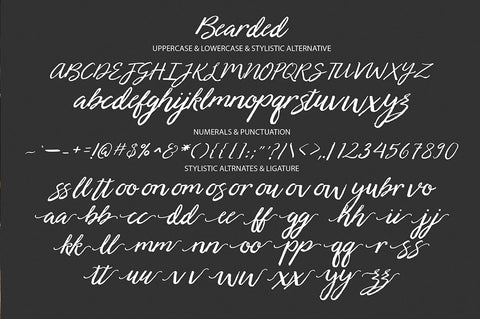 Bearded
UPPERCASE & LOWERCASE & STYLISTIC ALTERNATIVE
ABCDEFGHIJKLMNOPQRSTUVWXYZ
abcdefghijklmnopqrstuvwxyz
NUMERALS & PUNCTUATION
~`-–+=!@#$%^&*(){}[]:;"'?/|\<>,.1234567890
STYLISTIC ALTRNATES & LIGATURE
ss ll tt oo on om os or ou ov ow yu br vo
aa bb cc dd ee ff gg hh ii jj
kk ll mm nn oo pp qq rr ss
tt uu vv ww xx yy zz